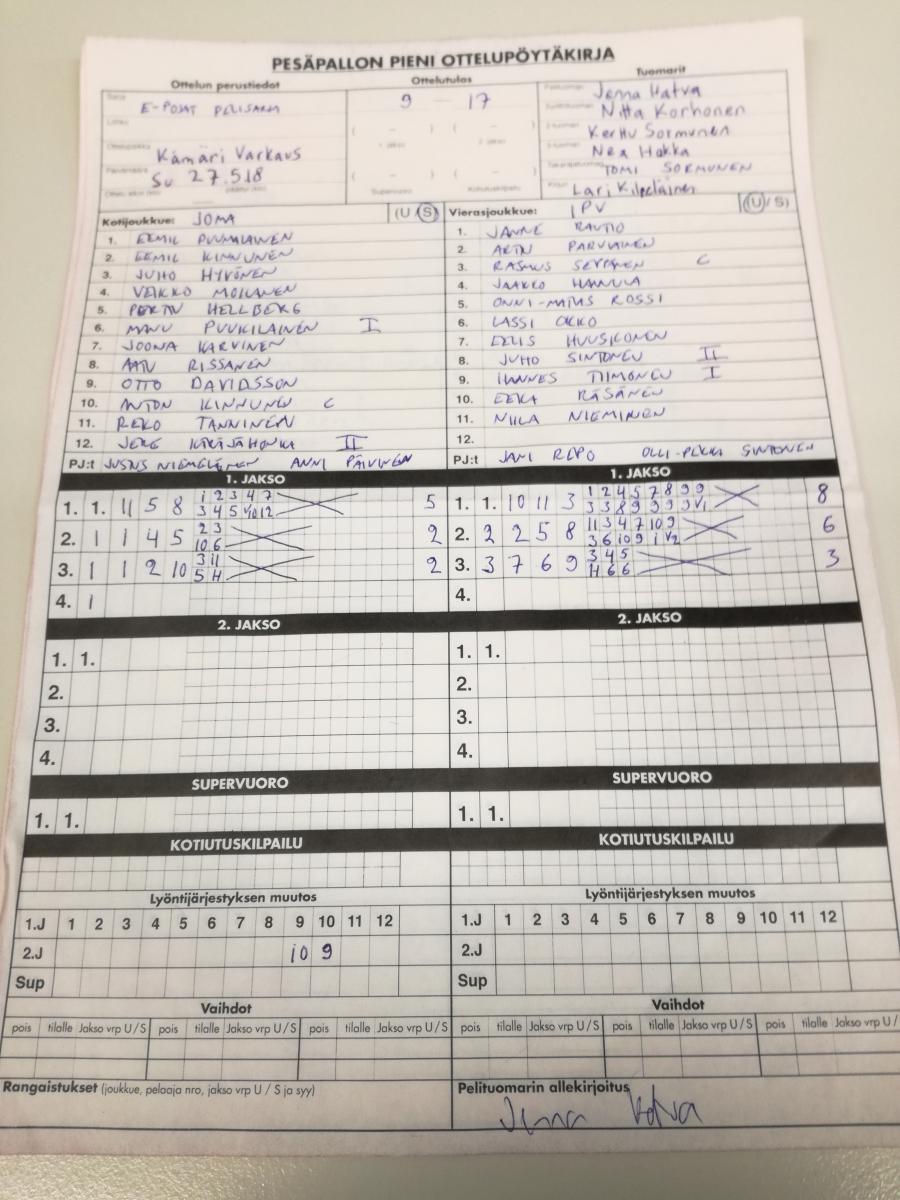 PESÄPALLON PIENI OTTELUPÖYTÄKIRJA
Ottelun perustiedot
E-POJAT PELISARJA
Kämäri Varkaus
Su 27.5.18
Ottelutulos
9 — 17
( – ) ( – )
1. jakso 2. jakso
( – ) ( – )
Supervuoro Kotiutuskilpailu
Tuomarit
Jenna Hatva
Niita Korhonen
Kerttu Sormunen
Nea Hakka
TOMI SORMUNEN
Lari Kilpeläinen
Kotijoukkue: JOMA (U/S)
1. EEMIL PUUMALAINEN
2. EEMIL KINNUNEN
3. JUHO HYVÖNEN
4. VEIKKO MOILANEN
5. PERTTU HELLBERG
6. MANU PUUKILAINEN I
7. JOONA KARVINEN
8. AATU RISSANEN
9. OTTO DAVIDSSON
10. ANTON KINNUNEN C
11. REKO TANNINEN
12. JERE II
PJ:t ANNI PÄIVINEN
Vierasjoukkue: IPV (U/S)
1. JANNE RAUTIO
2. PARVIAINEN
3. RASMUS SEPPÄNEN C
4. JAAKKO HANNULA
5. ONNI-MATIAS ROSSI
6. LASSI OKKO
7. EELIS HUUSKONEN
8. JUHO SINTONEN II
9. HANNES TIIMONEN I
10. EEKA RÄSÄNEN
11. NIILA NIEMINEN
12.
PJ:t JANI REPO OLLI-PEKKA SINTONEN
1. JAKSO
1. 1. 11 5 8 1 2 3 4 7 5
3 4 5 V10 12
2. 1 1 4 5 2 3 2
10 6
3. 1 1 2 10 3 11 2
5 H
4. 1
1. JAKSO
1. 1. 10 11 3 1 2 4 5 7 8 9 9 8
3 3 8 9 9 9 9 V1
2. 2 2 5 8 11 3 4 7 10 9 6
3 6 10 9 1 V2
3. 3 7 6 9 3 4 5 3
H 6 6
4.
2. JAKSO
1. 1.
2.
3.
4.
2. JAKSO
1. 1.
2.
3.
4.
SUPERVUORO
1. 1.
SUPERVUORO
1. 1.
KOTIUTUSKILPAILU
KOTIUTUSKILPAILU
Lyöntijärjestyksen muutos
1.J 1 2 3 4 5 6 7 8 9 10 11 12
2.J 10 9
Sup
Lyöntijärjestyksen muutos
1.J 1 2 3 4 5 6 7 8 9 10 11 12
2.J
Sup
Vaihdot
pois tilalle Jakso vrp U / S pois tilalle Jakso vrp U / S pois tilalle Jakso vrp U / S
Vaihdot
pois tilalle Jakso vrp U / S pois tilalle Jakso vrp U / S pois tilalle Jakso vrp U /
Rangaistukset (joukkue, pelaaja nro, jakso vrp U / S ja syy)
Pelituomarin allekirjoitus
Jenna Hatva